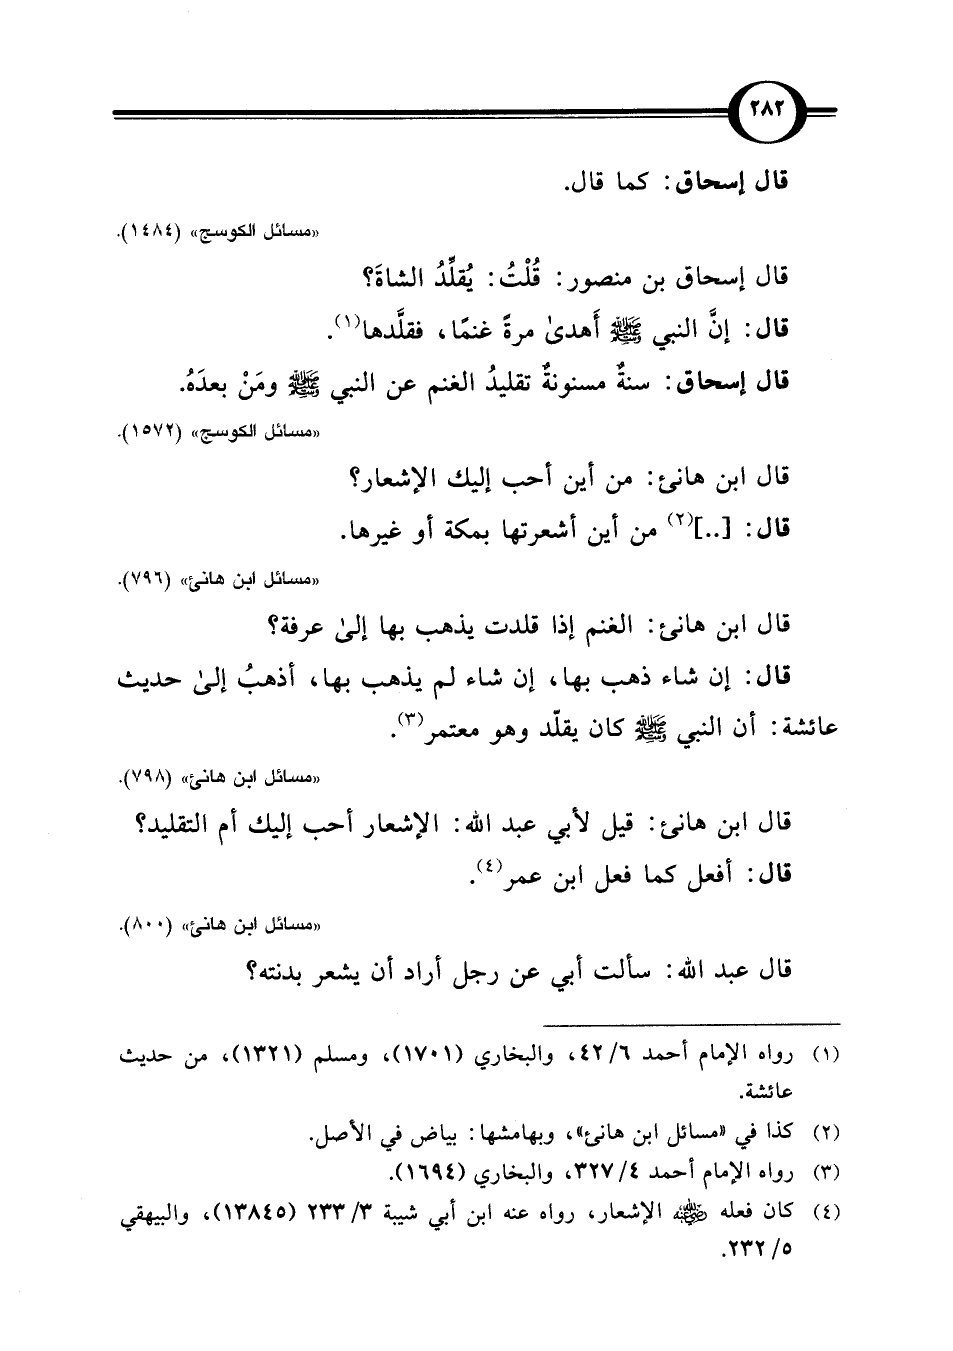 ٢٨٢
قال إسحاق: كما قال.
«مسائل الكوسج» (١٤٨٤).
قال إسحاق بن منصور: قُلْتُ: يُقلِّدُ الشاةَ؟
قال: إنَّ النبي ﷺ أَهدىٰ مرةً غنمًا، فقلَّدها(١).
قال إسحاق: سنةٌ مسنونةٌ تقليدُ الغنم عن النبي ﷺ ومَنْ بعدَهُ.
«مسائل الكوسج» (١٥٧٢).
قال ابن هانئ: من أين أحب إليك الإشعار؟
قال: [..](٢) من أين أشعرتها بمكة أو غيرها.
«مسائل ابن هانئ» (٧٩٦).
قال ابن هانئ: الغنم إذا قلدت يذهب بها إلىٰ عرفة؟
قال: إن شاء ذهب بها، إن شاء لم يذهب بها، أذهبُ إلىٰ حديث
عائشة: أن النبي ﷺ كان يقلّد وهو معتمر(٣).
«مسائل ابن هانئ» (٧٩٨).
قال ابن هانئ: قيل لأبي عبد الله: الإشعار أحب إليك أم التقليد؟
قال: أفعل كما فعل ابن عمر(٤).
«مسائل ابن هانئ» (٨٠٠).
قال عبد الله: سألت أبي عن رجل أراد أن يشعر بدنته؟
(١) رواه الإمام أحمد ٦/ ٤٢، والبخاري (١٧٠١)، ومسلم (١٣٢١)، من حديث
عائشة.
(٢) كذا في «مسائل ابن هانئ»، وبهامشها: بياض في الأصل.
(٣) رواه الإمام أحمد ٤/ ٣٢٧، والبخاري (١٦٩٤).
(٤) كان فعله رضي الله عنه الإشعار، رواه عنه ابن أبي شيبة ٣/ ٢٣٣ (١٣٨٤٥)، والبيهقي
٥/ ٢٣٢.